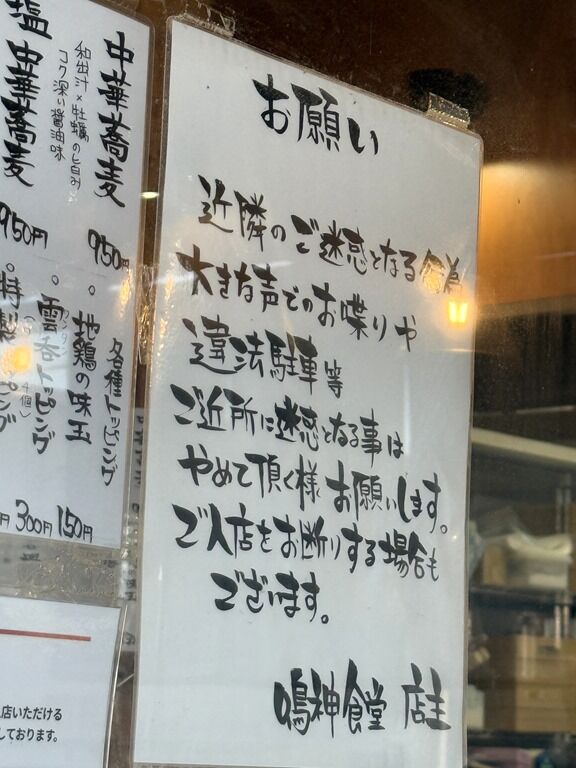 お願い
近隣のご迷惑となる行為
大きな声でのお喋りや
違法駐車等
ご近所に迷惑となる事は
やめて頂く様お願いします。
ご入店をお断りする場合も
ございます。
鳴神食堂 店主
中華蕎麦
和出汁×牡蠣の旨み
コク深い醤油味
950円
塩中華蕎麦
950円
各種トッピング
。地鶏の味玉
150円
。雲呑トッピング
300円
。特製
店いただける
しております。